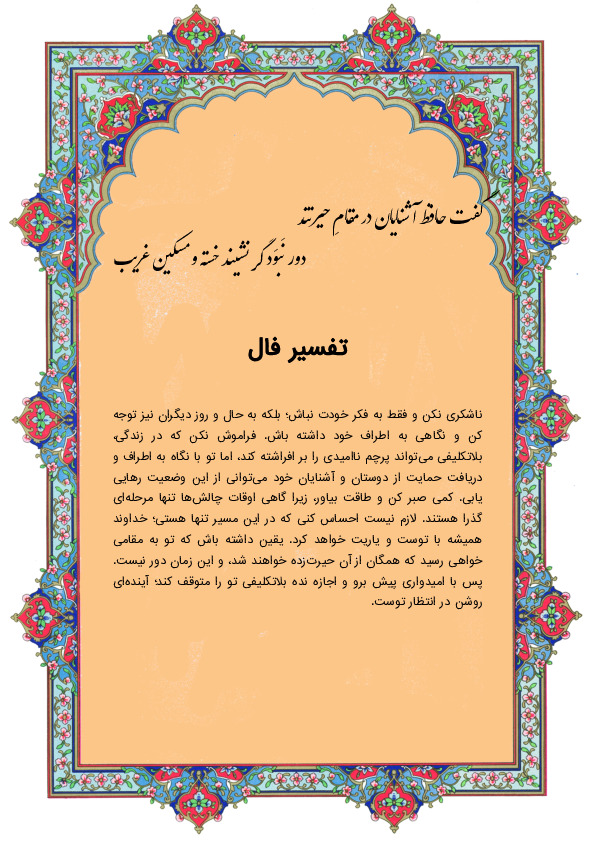 گفت حافظ آشنایان در مقامِ حیرتند
دور نَبْوَد گر نشیند خسته و مسکین غریب
تفسیر فال
ناشکری نکن و فقط به فکر خودت نباش؛ بلکه به حال و روز دیگران نیز توجه
کن و نگاهی به اطراف خود داشته باش. فراموش نکن که در زندگی،
بلاتکلیفی می‌تواند پرچم ناامیدی را بر افراشته کند، اما تو با نگاه به اطراف و
دریافت حمایت از دوستان و آشنایان خود می‌توانی از این وضعیت رهایی
یابی. کمی صبر کن و طاقت بیاور، زیرا گاهی اوقات چالش‌ها تنها مرحله‌ای
گذرا هستند. لازم نیست احساس کنی که در این مسیر تنها هستی؛ خداوند
همیشه با توست و یاریت خواهد کرد. یقین داشته باش که تو به مقامی
خواهی رسید که همگان از آن حیرت‌زده خواهند شد، و این زمان دور نیست.
پس با امیدواری پیش برو و اجازه نده بلاتکلیفی تو را متوقف کند؛ آینده‌ای
روشن در انتظار توست.